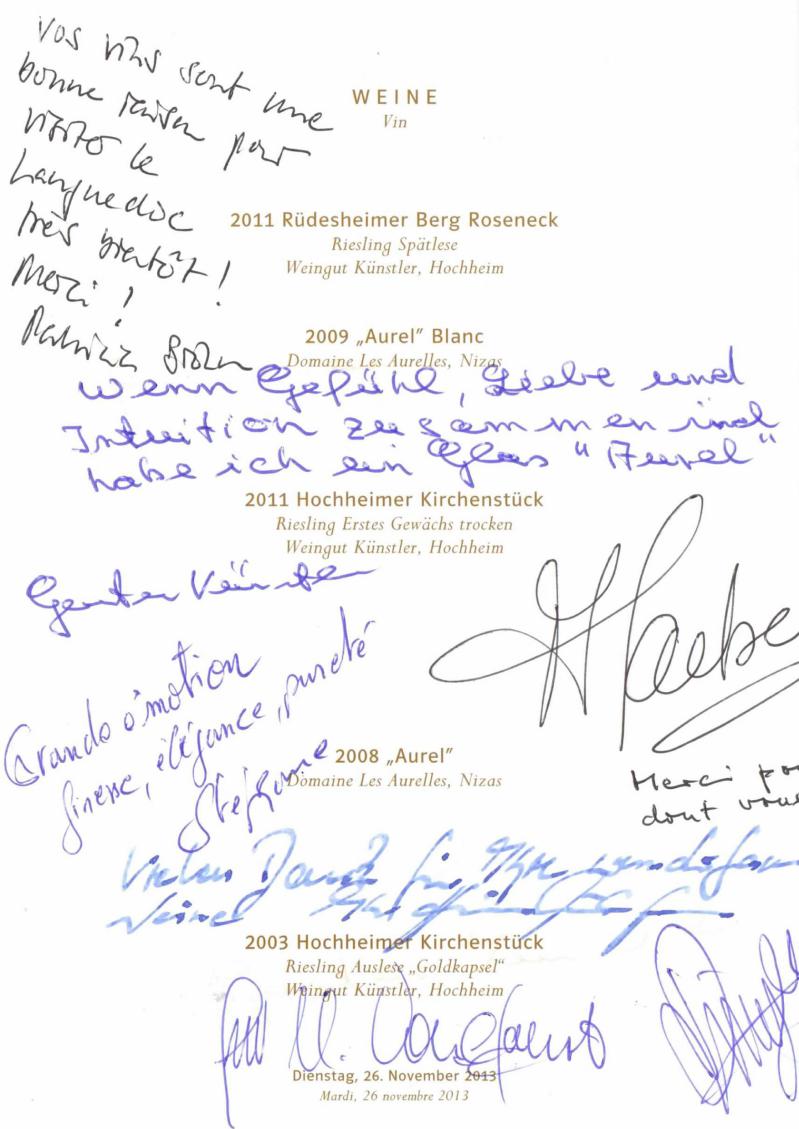 Vos vins sont une
bonne raison pour
visiter le
Languedoc
très bientôt !
Merci !
Patricia
WEINE
Vin
2011 Rüdesheimer Berg Roseneck
Riesling Spätlese
Weingut Künstler, Hochheim
2009 „Aurel” Blanc
Domaine Les Aurelles, Nizas
Wenn Gefühl, Liebe und
Intuition zusammen sind
habe ich ein Glas "Aurel"
2011 Hochheimer Kirchenstück
Riesling Erstes Gewächs trocken
Weingut Künstler, Hochheim
Gunter Künstler
Grande o'motion
finesse, élégance, pureté
Stéphane
2008 „Aurel”
Domaine Les Aurelles, Nizas
Merci
dont vous
Vielen Dank für Ihre
Weine
2003 Hochheimer Kirchenstück
Riesling Auslese „Goldkapsel“
Weingut Künstler, Hochheim
Dienstag, 26. November 2013
Mardi, 26 novembre 2013